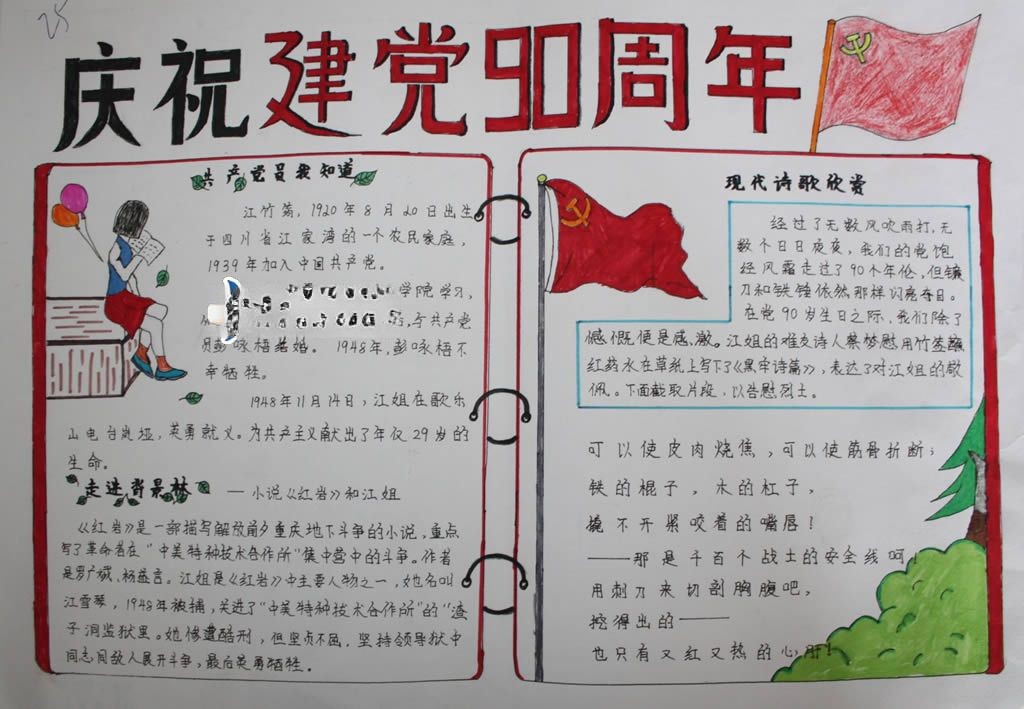 25
庆祝建党90周年
共产党员我知道
江竹筠，1920年8月20日出生
于四川省江家湾的一个农民家庭，
1939年加入中国共产党。
学院学习，
与共产党
员彭咏梧结婚。 1948年，彭咏梧不
幸牺牲。
1948年11月14日，江姐在歌乐
山电台岚垭，英勇就义。为共产主义献出了年仅29岁的
生命。
走进背景林 —小说《红岩》和江姐
《红岩》是一部描写解放前夕重庆地下斗争的小说，重点
写了革命者在“中美特种技术合作所”集中营中的斗争。作者
是罗广斌、杨益言。江姐是《红岩》中主要人物之一，她名叫
江雪琴，1948年被捕，关进了“中美特种技术合作所”的“渣
子洞监狱里。她惨遭酷刑，但坚贞不屈，坚持领导狱中
同志同敌人展开斗争，最后英勇牺牲。
现代诗歌欣赏
经过了无数风吹雨打，无
数个日日夜夜，我们的党饱
经风霜走过了90个年伦，但镰
刀和铁锤依然那样闪亮夺目。
在党90岁生日之际，我们除了
憾慨便是感激。江姐的难友诗人蔡梦慰用竹签蘸
红药水在草纸上写下了《黑牢诗篇》，表达了对江姐的敬
佩。下面截取片段，以告慰烈士。
可以使皮肉烧焦，可以使筋骨折断；
铁的棍子，木的杠子，
撬不开紧咬着的嘴唇！
——那是千百个战士的安全线呵！
用刺刀来切剖胸腹吧，
挖得出的——
也只有又红又热的心肝！